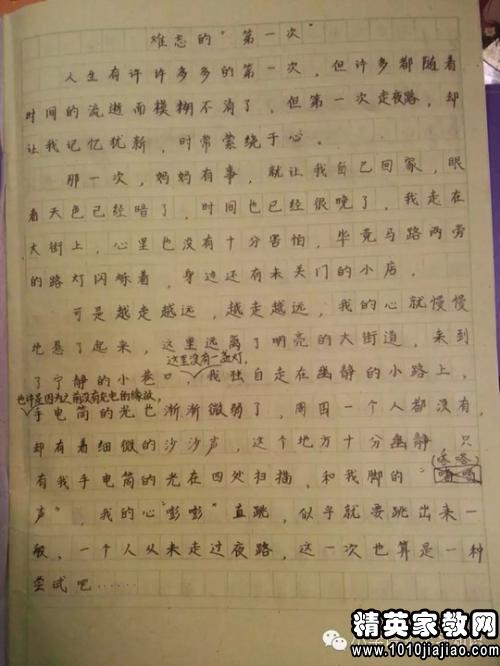 难忘的“第一次”
人生有许许多多的第一次，但许多都随着
时间的流逝而模糊不清了，但第一次走夜路，却
让我记忆犹新，时常萦绕于心。
那一次，妈妈有事，就让我自己回家，眼
看天色已经暗了，时间也已经很晚了，我走在
大街上，心里也没有十分害怕，毕竟马路两旁
的路灯闪烁着，身边还有未关门的小店。
可是越走越远，越走越远，我的心就慢慢
地悬了起来，这里远离了明亮的大街道，来到
这里没有一盏灯，
了宁静的小巷口，我独自走在幽静的小路上，
也许是因为之前没有充电的缘故，
手电筒的光也渐渐微弱了，周围一个人都没有，
却有着细微的沙沙声，这个地方十分幽静，只
有我手电筒的光在四处扫描，和我脚的“
声”，我的心“嘭嘭”直跳，似乎就要跳出来一
般，一个人从未走过夜路，这一次也算是一种
尝试吧……
精英家教网
www.1010jiajiao.com